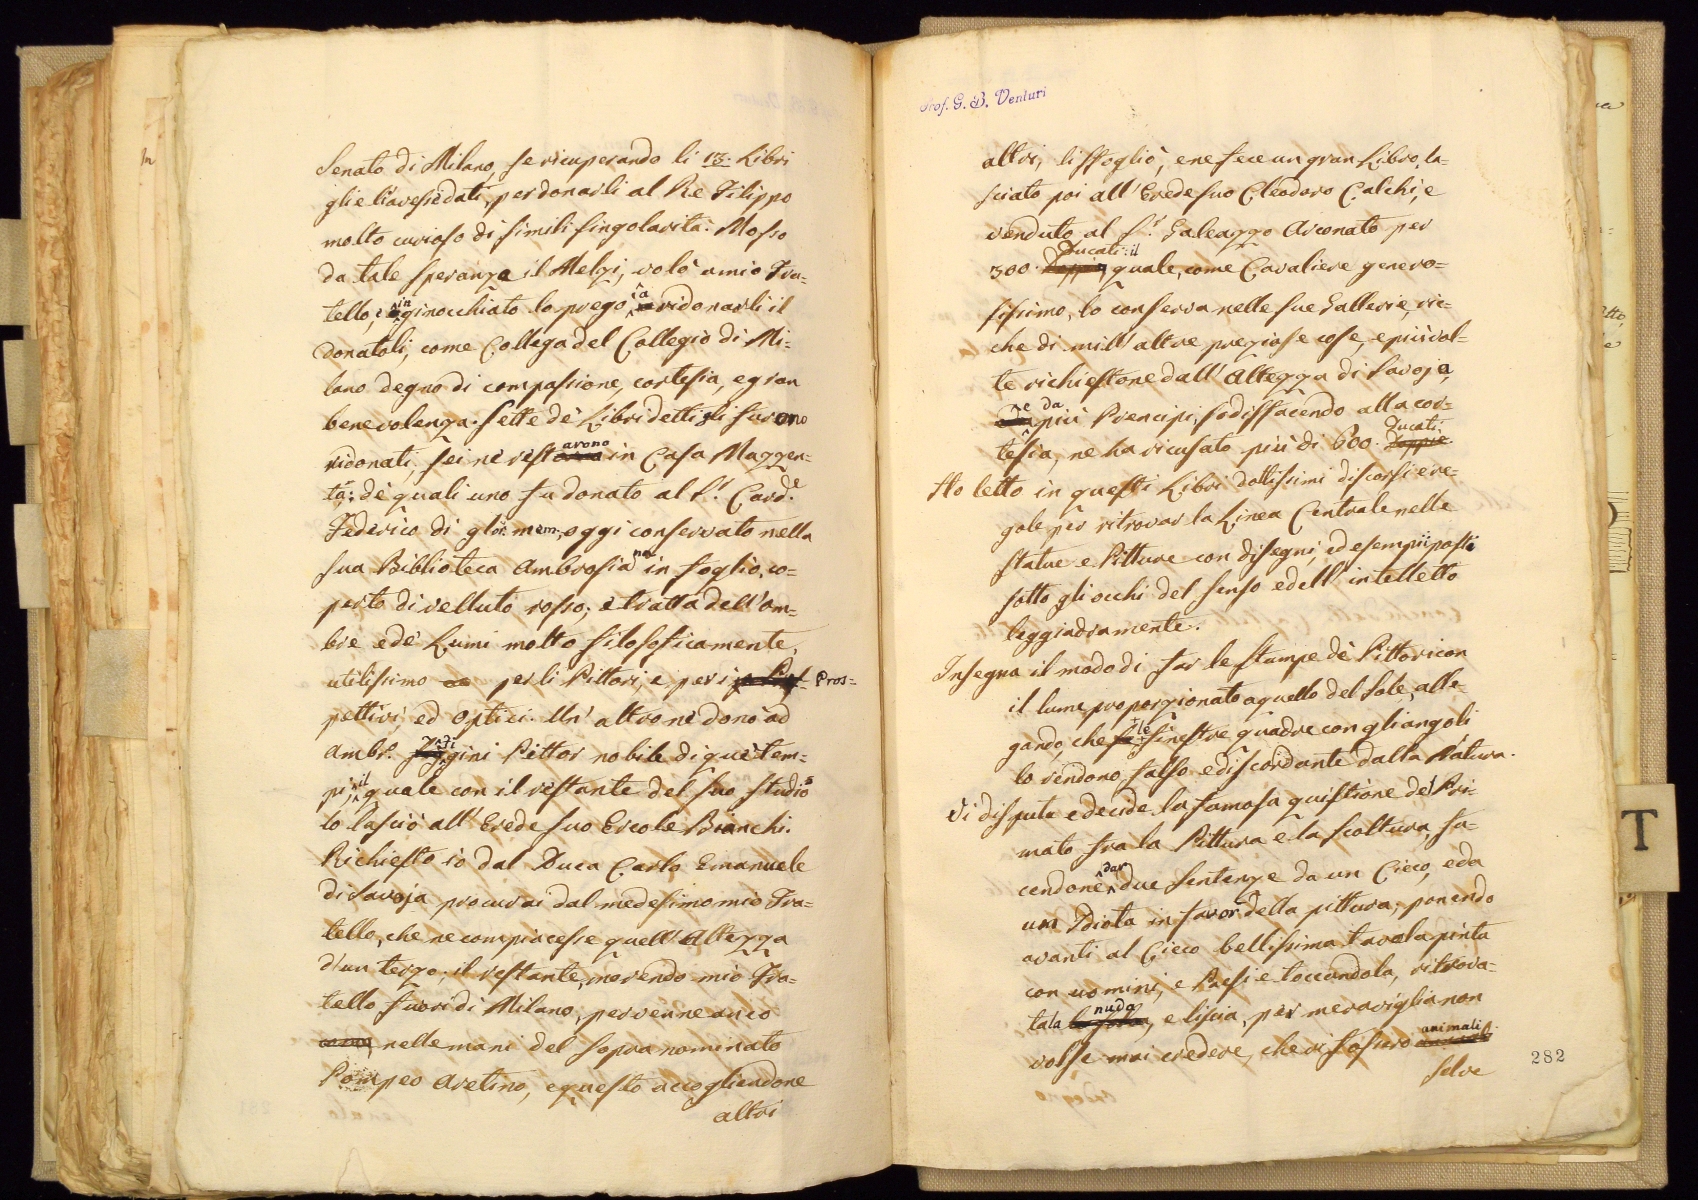 Senato di Milano, se ricuperando li 13. Libri
glie li avesse dati, per donarli al Re Filippo
molto curioso di simili singolarità. Mosso
da tale speranza il Melzi, volò a mio Fra=
tello, e inginocchiato lo pregò a ridonarli il
donatoli, come Collega del Collegio di Mi=
lano degno di compassione, cortesia, e gran
benevolenza. Sette de' Libri detti gli furono
ridonati, sei ne restarono in Casa Mazzen=
ta; de' quali uno fu donato al S.r Card.e
Federico di glor. mem. oggi conservato nella
sua Biblioteca Ambrosiana in foglio, co=
perto di velluto rosso; e tratta dell'om=
bre e de' Lumi molto filosoficamente,
utilissimo per li Pittori, e per i Pros=
pettivi, ed Optici. Un' altro ne donò ad
Ambr. Figgini Pittor nobile di que' tem=
pi, il quale con il restante del suo studio
lo lasciò all' Erede suo Ercole Bianchi.
Richiesto io dal Duca Carlo Emanuele
di Savoja procurai dal medesimo mio Fra=
tello, che ne compiacesse quell' Altezza
d'un terzo; il restante, morendo mio Fra=
tello fuori di Milano, pervenne anco
nelle mani del sopra nominato
Pompeo Aretino, e questo accogliendone
altri
Prof. G. B. Venturi
altri, li sfogliò, e ne fece un gran Libro, la=
sciato poi all' Erede suo Cleodoro Calchi, e
venduto al S.r Galeazzo Arconato per
300. Ducati: il quale, come Cavaliere genero=
sissimo, lo conserva nelle sue Gallerie, ric=
che di mill' altre preziose cose, e più vol=
te richiestone dall' Altezza di Savoja,
ne da più Prencipi, sodisfacendo alla cor=
tesia, ne ha ricusato più di 600. Ducati.
Ho letto in questi Libri dottissimi discorsi e re=
gole per ritrovar la Linea Centrale nelle
statue e Pitture con disegni, ed esempii posti
sotto gli occhi del senso e dell' intelletto
leggiadramente.
Insegna il modo di far le stampe de' Pittori con
il lume proporzionato a quello del Sole, alle=
gando, che le finestre quadre con gli angoli
lo rendono falso e discordante dalla Natura.
Vi disputa e decide la famosa quistione de' Pri=
mato fra la Pittura e la scoltura, fa=
cendone dar due sentenze da un Cieco, e da
un Idiota in favor della pittura; ponendo
avanti al Cieco bellissima tavola pinta
con uomini, e Paesi e toccandola, ritrova=
tala nuda, e liscia, per meraviglia non
volse mai credere, che vi fossero animali
selve
282
T